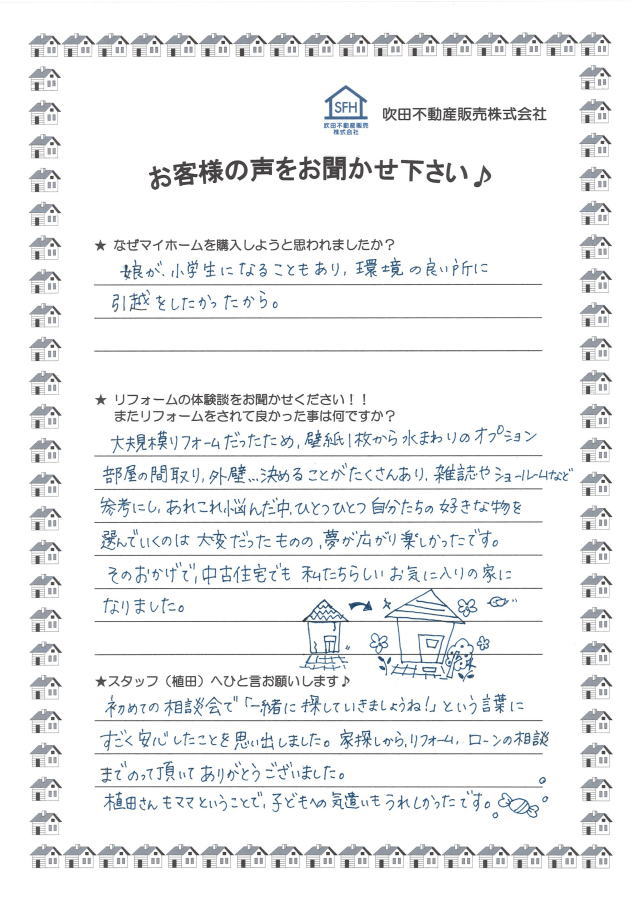 SFH
吹田不動産販売
株式会社
吹田不動産販売株式会社
お客様の声をお聞かせ下さい♪
★ なぜマイホームを購入しようと思われましたか？
娘が、小学生になることもあり、環境の良い所に
引越をしたかったから。
★ リフォームの体験談をお聞かせください！！
またリフォームをされて良かった事は何ですか？
大規模リフォームだったため、壁紙1枚から水まわりのオプション
部屋の間取り、外壁…決めることがたくさんあり、雑誌やショールームなど
参考にし、あれこれ悩んだ中、ひとつひとつ自分たちの好きな物を
選んでいくのは大変だったものの、夢が広がり楽しかったです。
そのおかげで、中古住宅でも私たちらしいお気に入りの家に
なりました。
★スタッフ（植田）へひと言お願いします♪
初めての相談会で「一緒に探していきましょうね！」という言葉に
すごく安心したことを思い出しました。家探しから、リフォーム、ローンの相談
までのって頂いてありがとうございました。
植田さんもママということで、子どもへの気遣いもうれしかったです。